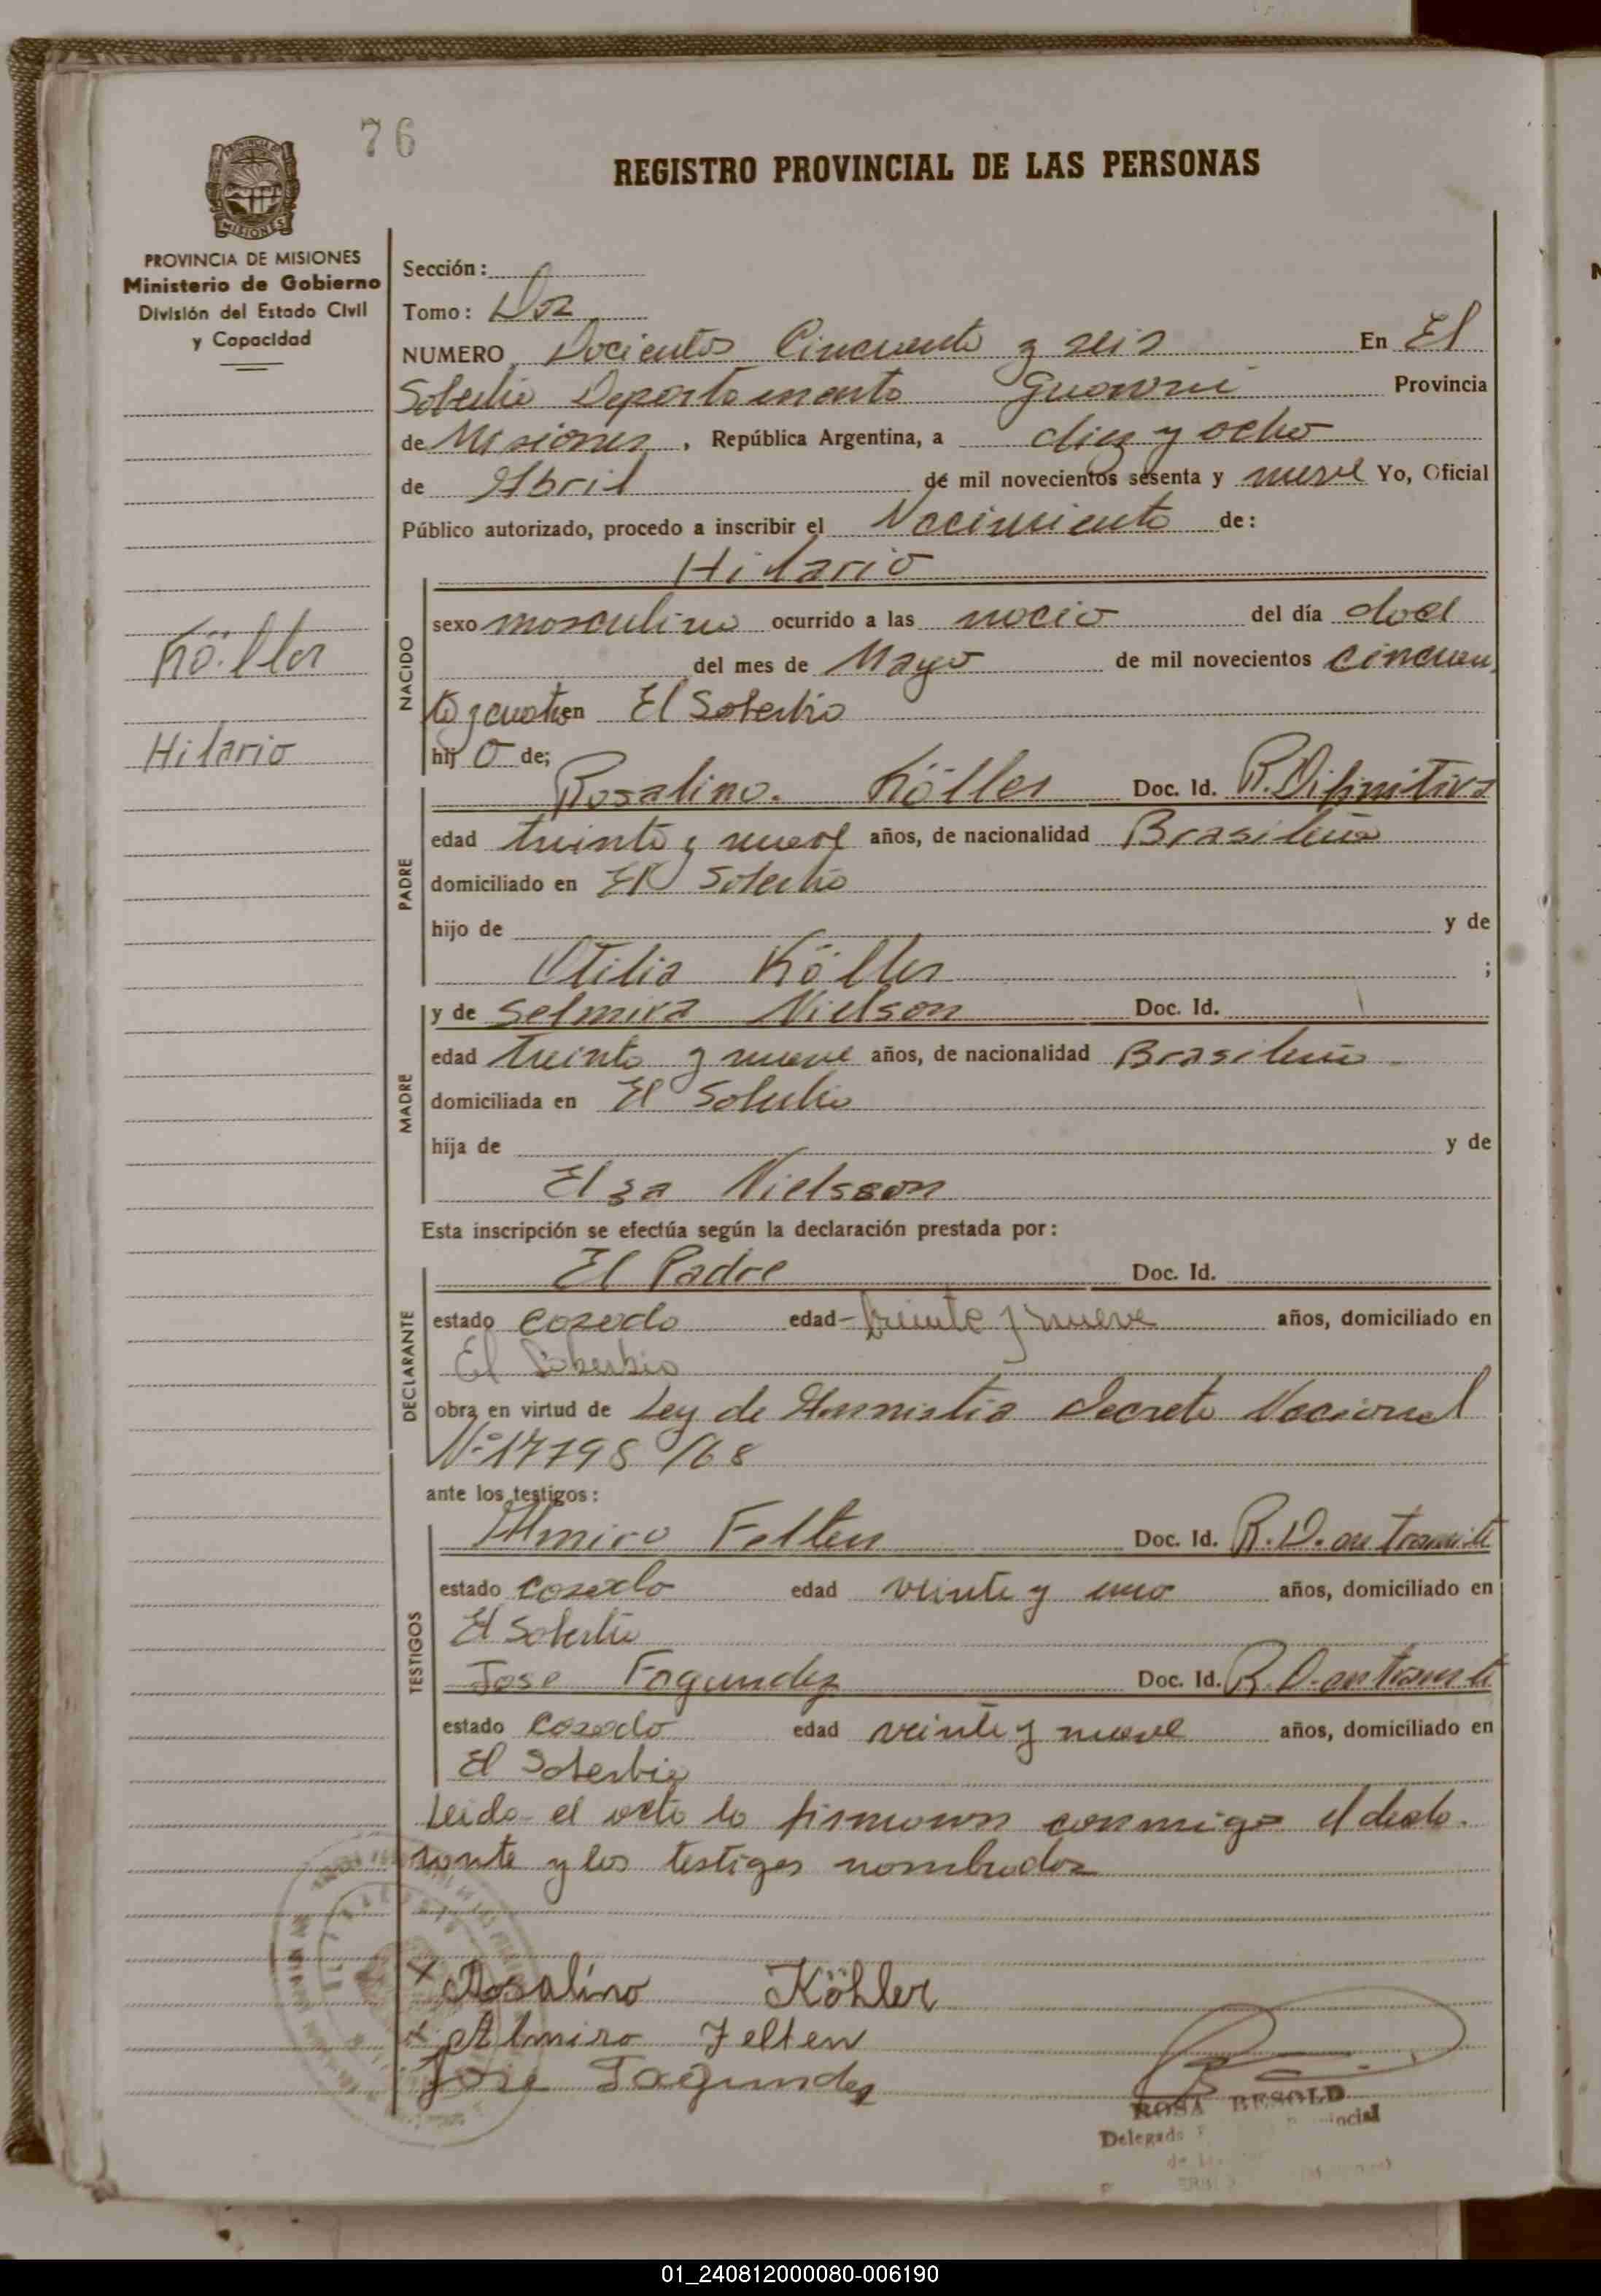 76
REGISTRO PROVINCIAL DE LAS PERSONAS
PROVINCIA DE MISIONES
Ministerio de Gobierno
División del Estado Civil
y Capacidad
Köller
Hilario
Sección:
Tomo: Dos
NUMERO Docientos Cincuenta y seis En El
Soberbio Departamento Guarani Provincia
de Misiones, República Argentina, a diez y ocho
de Abril de mil novecientos sesenta y nueve Yo, Oficial
Público autorizado, procedo a inscribir el Nacimiento de:
Hilario
NACIDO
sexo masculino ocurrido a las nocio del día doce
del mes de Mayo de mil novecientos cincuen
ta y cuatro en El Soberbio
hij o de;
Rosalino. Köller Doc. Id. R. Difinitiva
PADRE
edad treinta y nueve años, de nacionalidad Brasileña
domiciliado en El Soberbio
hijo de y de
Otilia Köller ;
y de Selmira Nielson Doc. Id.
MADRE
edad treinta y nueve años, de nacionalidad Brasileña
domiciliada en El Soberbio
hija de y de
Elsa Nielsson
Esta inscripción se efectúa según la declaración prestada por:
El Padre Doc. Id.
DECLARANTE
estado casado edad treinta y nueve años, domiciliado en
El Soberbio
obra en virtud de Ley de Amnistia Decreto Nacional
Nº 17798/68
ante los testigos:
Almiro Felten Doc. Id. R. D. en tramite
TESTIGOS
estado casado edad veinte y uno años, domiciliado en
El Soberbio
Jose Fagundez Doc. Id. R. D. en tramite
estado casado edad veinte y nueve años, domiciliado en
El Soberbio
Leida el acta la firmaron conmigo el decla-
rante y los testigos nombrados
x Rosalino Köhler
x Almiro Felten
Jose Fagundez
ROSA BESOLD
Delegada
01_240812000080-006190